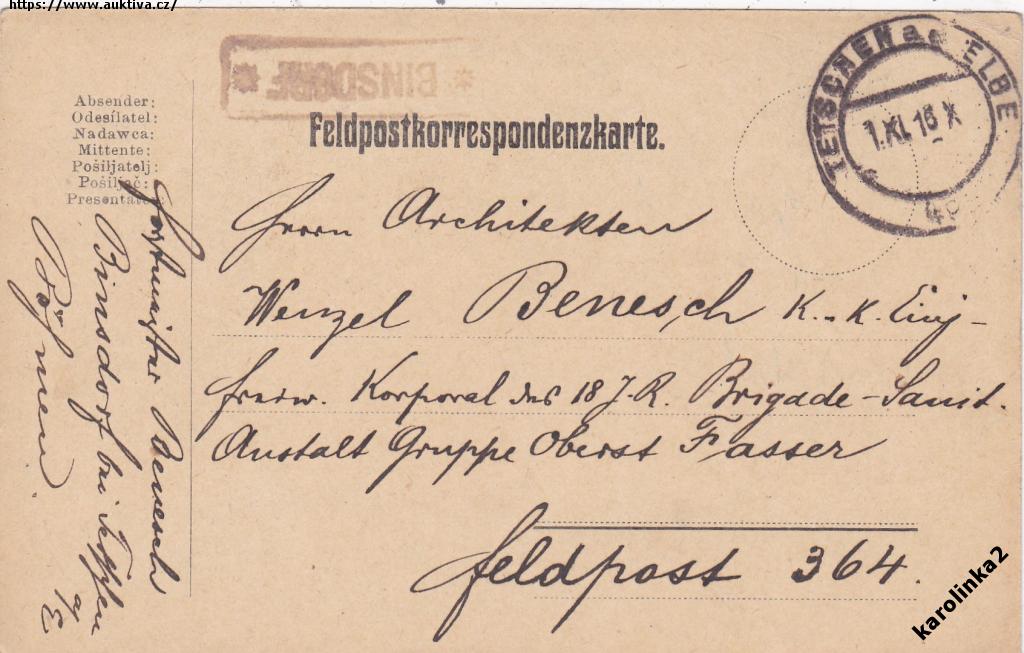 https://www.auktiva.cz/
* BINSDORF *
TETSCHEN a.d. ELBE
1.XI.16 X
Absender:
Odesílatel:
Nadawca:
Mittente:
Pošiljatelj:
Pošiljač:
Presentator:
Feldpostkorrespondenzkarte.
Herrn Architekten
Wenzel Benesch K. K. Einj-
freiw. Korporal des 18 J.R. Brigade-Sanit.
Anstalt Gruppe Oberst Fasser
Feldpost 364.
Forstmeister Benesch
Binsdorf bei Tetschen
a/E
Böhmen
karolinka2